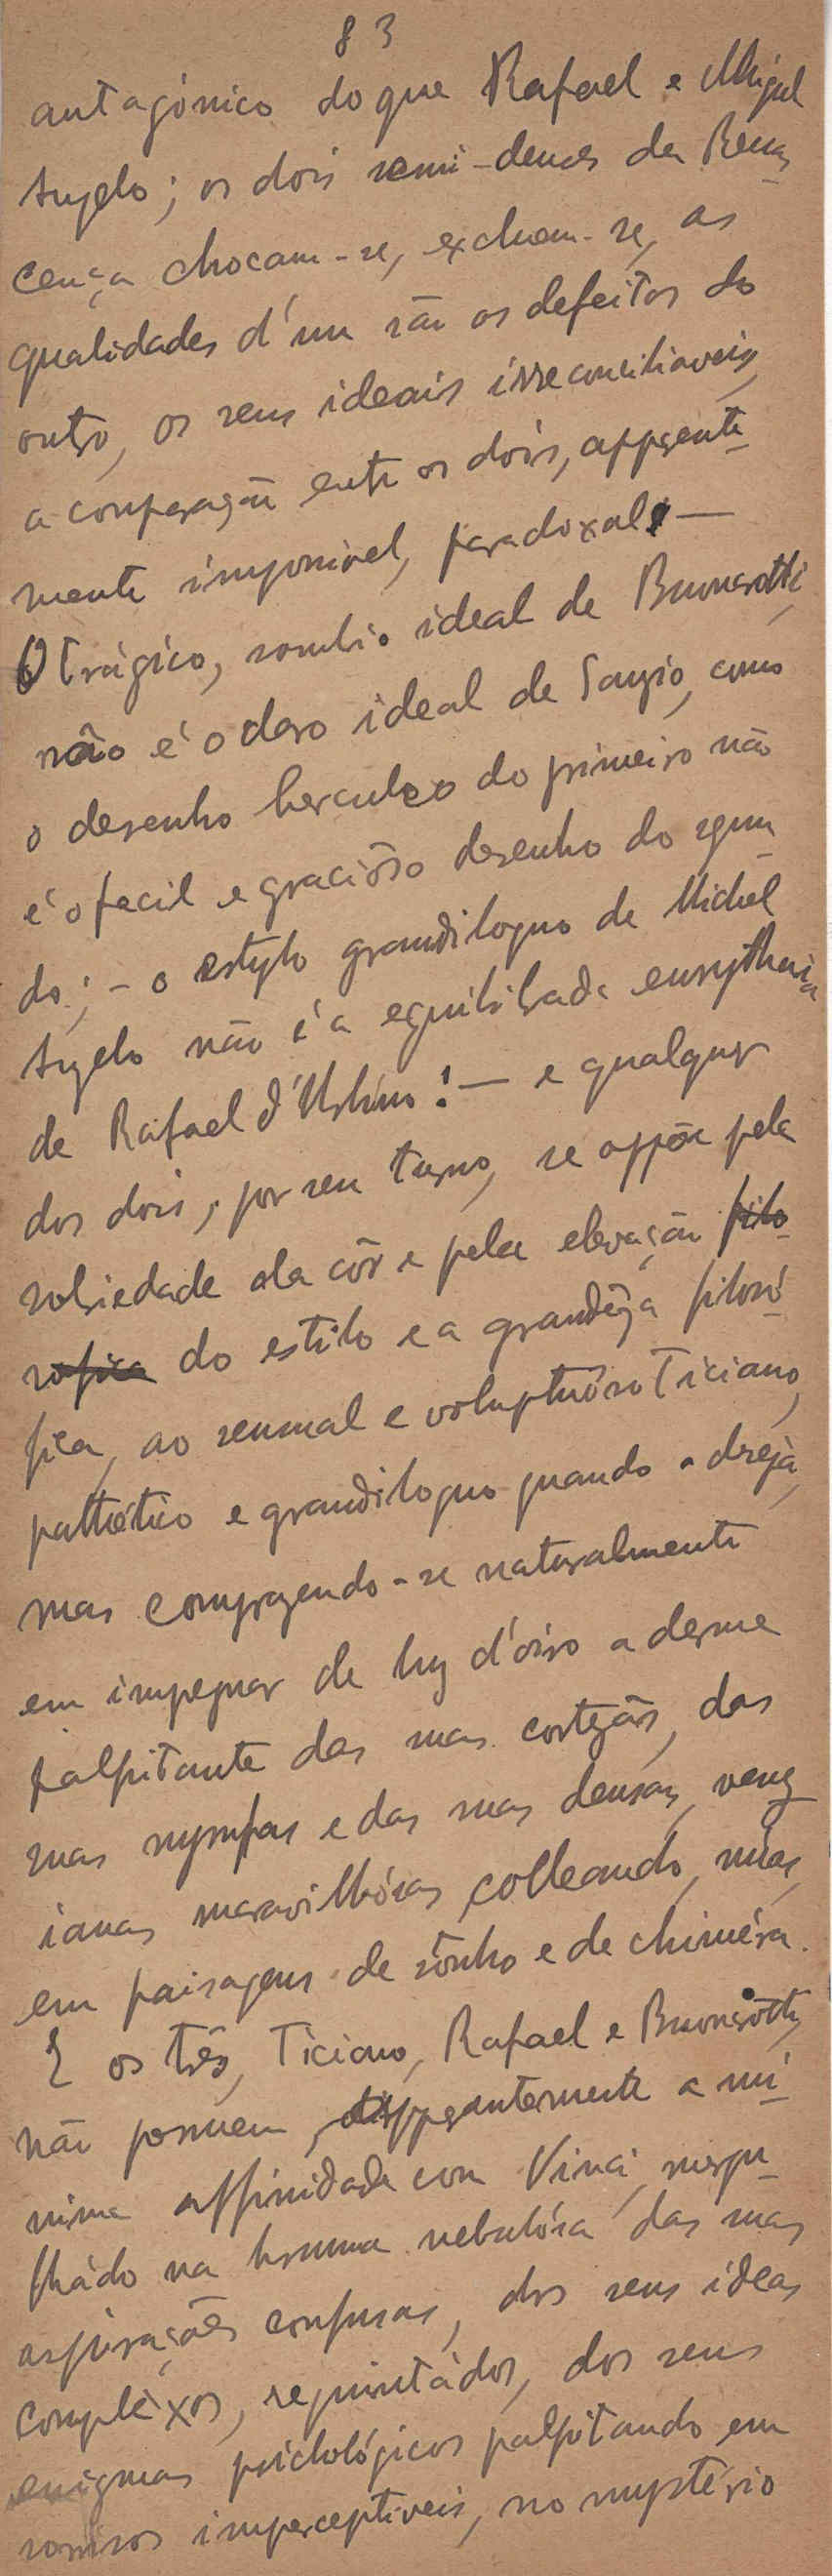 83
antagónico do que Rafael e Miguel
Angelo; os dois semi-deuses da Renas
cença chocam-se, excluem-se, as
qualidades d'um são os defeitos do
outro, os seus ideais irreconciliaveis,
a comparação entre os dois, apparente-
mente impossivel, paradoxal, —
O trágico, sombrio ideal de Buonarotti,
não é o claro ideal de Sanzio, como
o desenho herculeo do primeiro não
é o facil e graciôso desenho do segun-
do; - o estylo grandiloquo de Michel
Angelo não é a equilibrada eurythmia
de Rafael d'Urbino! — e qualquer
dos dois, por seu turno, se oppõe pela
sobriedade da côr e pela elevação filo-
sofica do estilo e a grandêza filosó-
fica, ao sensual e voluptuôso Ticiano,
pathético e grandiloquo quando o deseja,
mas comprazendo-se naturalmente
em impregnar de luz d'oiro a derme
palpitante das suas cortezãs, das
suas nymfas e das suas deusas, venez
ianas maravilhósas colleando, núas,
em paisagens de sônho e de chiméra.
E os três, Ticiano, Rafael e Buonarôtti,
não possuem, apparentemente a mi-
nima affinidade com Vinci, mergu-
lhádo na bruma nebulósa das suas
aspirações confusas, dos seus ideas
compléxos, requintádos, dos seus
enigmas psichológicos palpitando em
sorrisos imperceptiveis, no mystério